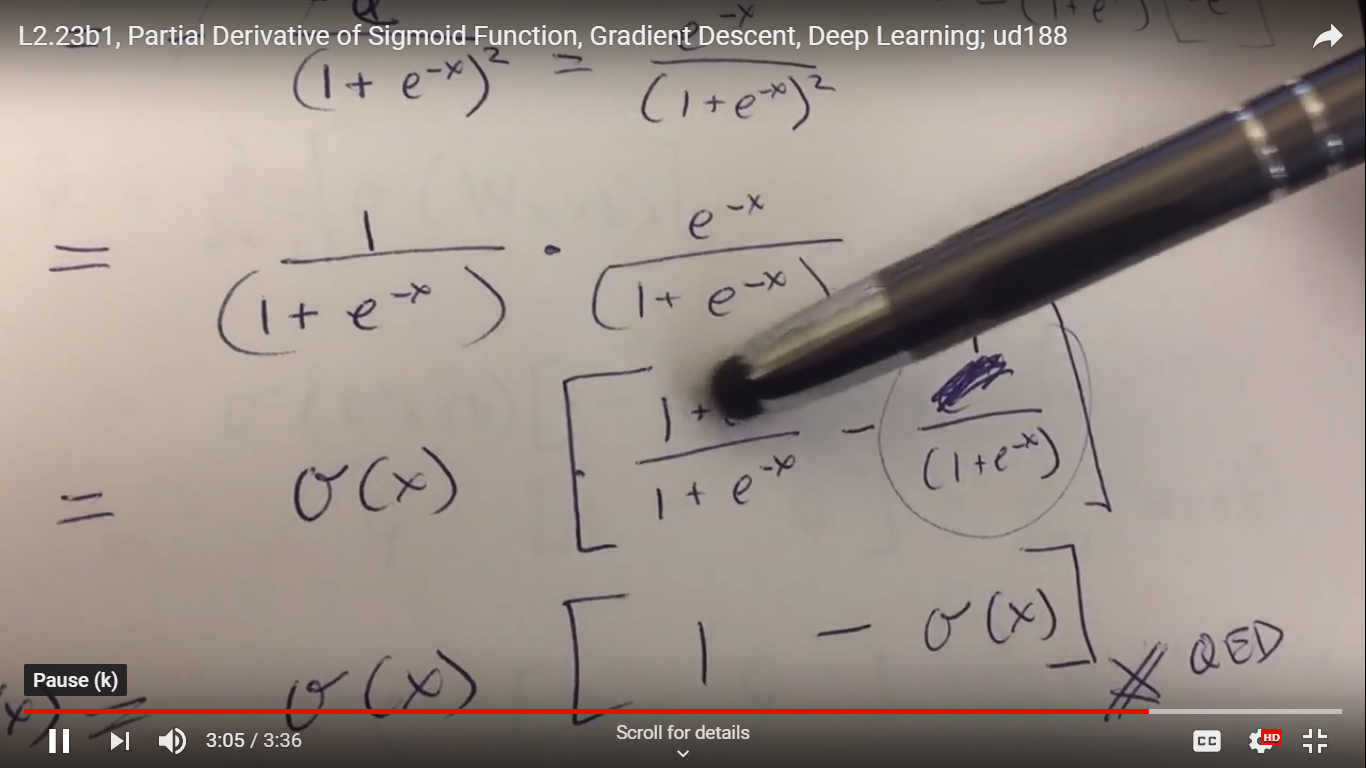 L2.23b1, Partial Derivative of Sigmoid Function, Gradient Descent, Deep Learning; ud188
= (1 + e^-x)² = e^-x / (1+e^-x)²
= 1 / (1 + e^-x) · e^-x / (1 + e^-x)
= σ(x) [ 1 + / 1 + e^-x - 1 / (1+e^-x) ]
(x) = σ(x) [ 1 - σ(x) ] QED
Pause (k)
3:05 / 3:36
Scroll for details
CC
HD